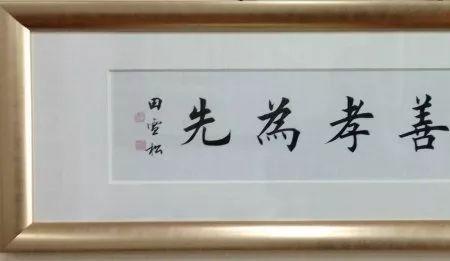 善孝為先
田雪松